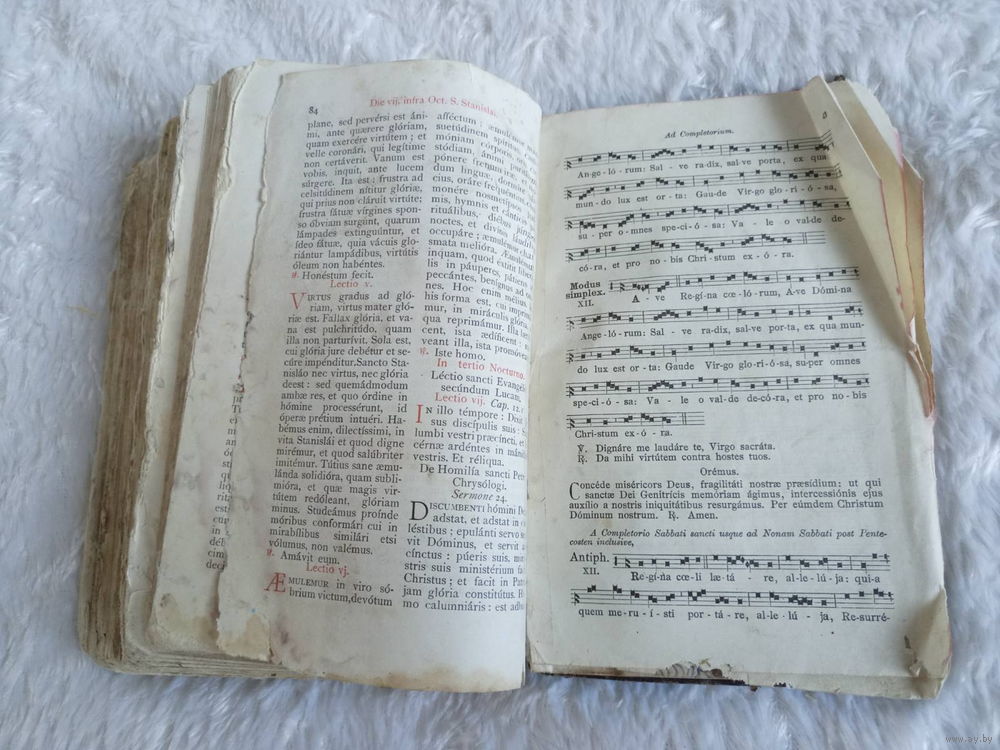 84
Die vij. infra Oct. S. Stanislai.
plane, sed pervérsi est áni-
mi, ante quærere glóriam,
quam exercére virtútem; et
velle coronári, qui legítime
non certáverit. Vanum est
vobis, inquit, ante lucem
súrgere. Ita est: frustra ad
celsitúdinem nítitur glóriæ,
qui prius non cláruit virtúte;
frustra fátuæ vírgines spon-
so óbviam surgunt, quarum
lámpades extinguúntur, et
ídeo fátuæ, quia vácuis glo-
riántur lampádibus, virtútis
óleum non habéntes.
℟. Honéstum fecit.
Lectio v.
VIRTUS gradus ad gló-
riam, virtus mater gló-
riæ est. Fallax glória, et va-
na est pulchritúdo, quam
illa non partúrivit. Sola est,
cui glória jure debétur et se-
cúre impénditur. Sancto Sta-
nisláo nec virtus, nec glória
deest: sed quemádmodum
ambæ res, et quo órdine in
hómine processérunt, id
óperæ prétium intuéri. Ha-
bémus enim, dilectíssimi, in
vita Stanislái et quod digne
mirémur, et quod salúbriter
imitémur. Tútius sane æmu-
lánda solidióra, quam subli-
mióra, et quæ magis vir-
tútem redóleant, glóriam
minus. Studeámus proínde
móribus conformári cui in
mirabílibus similári etsi
vólumus, non valémus.
℟. Amávit eum.
Lectio vj.
ÆMULEMUR in viro só-
brium victum, devótum
afféctum; æmulémur
suetúdinem spíritus,
móniam córporis,
stódiam, ánimi
pónere fictum iræ, et
dum linguæ, dormíre
cius, oráre frequéntius,
monére nosmetípsos
mis, hymnis et cánticis
rituálibus, diébus júngere
noctes, et divínis láudibus
occupáre; æmulémur
smata melióra. Æmulémur
inquam, quod éxitit líber
lis in páuperes,
peccántes, benígnus ad
nes. Hoc enim mélius.
his forma est, cui
mur, in miráculis glória
qua reprimámur. Illa
cent, ista ædíficent:
veant illa, ista promóveant
℟. Iste homo.
In tertio Nocturno.
Léctio sancti Evangélii
secúndum Lucam.
Lectio vij. Cap. 12.
IN illo témpore: Dixit
sus discípulis suis:
lumbi vestri præcíncti, et
cérnæ ardéntes in mánibus
vestris. Et réliqua.
De Homilía sancti Petri
Chrysólogi.
Sermone 24.
DISCUMBENTI hómini De
adstat, et adstat in
léstibus; epulánti servo
vit Dóminus, et servit
cínctus: púeris suis,
stris suis ministérium
Christus; et facit in
jam glória constitútus.
mo calumniáris: est adhuc
Ad Completorium.
An-ge-ló-rum: Sal - ve ra-dix, sal-ve porta, ex qua
mun-do lux est or-ta: Gau-de Vir-go glo-ri-ó-sa,
su-per o-mnes spe-ci-ó-sa: Va - le o val-de de-
có-ra, et pro no-bis Chri-stum ex-ó-ra.
Modus
simplex.
XII.
A - ve Re-gí-na cœ-ló-rum, A-ve Dómi-na
Ange-ló-rum: Sal - ve ra-dix, sal-ve por-ta, ex qua mun-
do lux est or-ta: Gaude Vir-go glo-ri-ó-sa, su-per omnes
spe-ci-ó-sa: Va - le o val-de de-có-ra, et pro no-bis
Chri-stum ex-ó-ra.
℣. Dignáre me laudáre te, Virgo sacráta.
℟. Da mihi virtútem contra hostes tuos.
Orémus.
Concéde miséricors Deus, fragilitáti nostræ præsídium; ut qui
sanctæ Dei Genitrícis memóriam ágimus, intercessiónis ejus
auxílio a nostris iniquitátibus resurgámus. Per eúmdem Christum
Dóminum nostrum. ℟. Amen.
A Completorio Sabbati sancti usque ad Nonam Sabbati post Pente-
costen inclusive,
Antiph.
XII.
Re-gí-na cœ-li læ-tá - re, al-le-lú-ja: qui-a
quem me-ru-í-sti por-tá-re, al-le-lú - ja, Re-surré-
www.ay.by